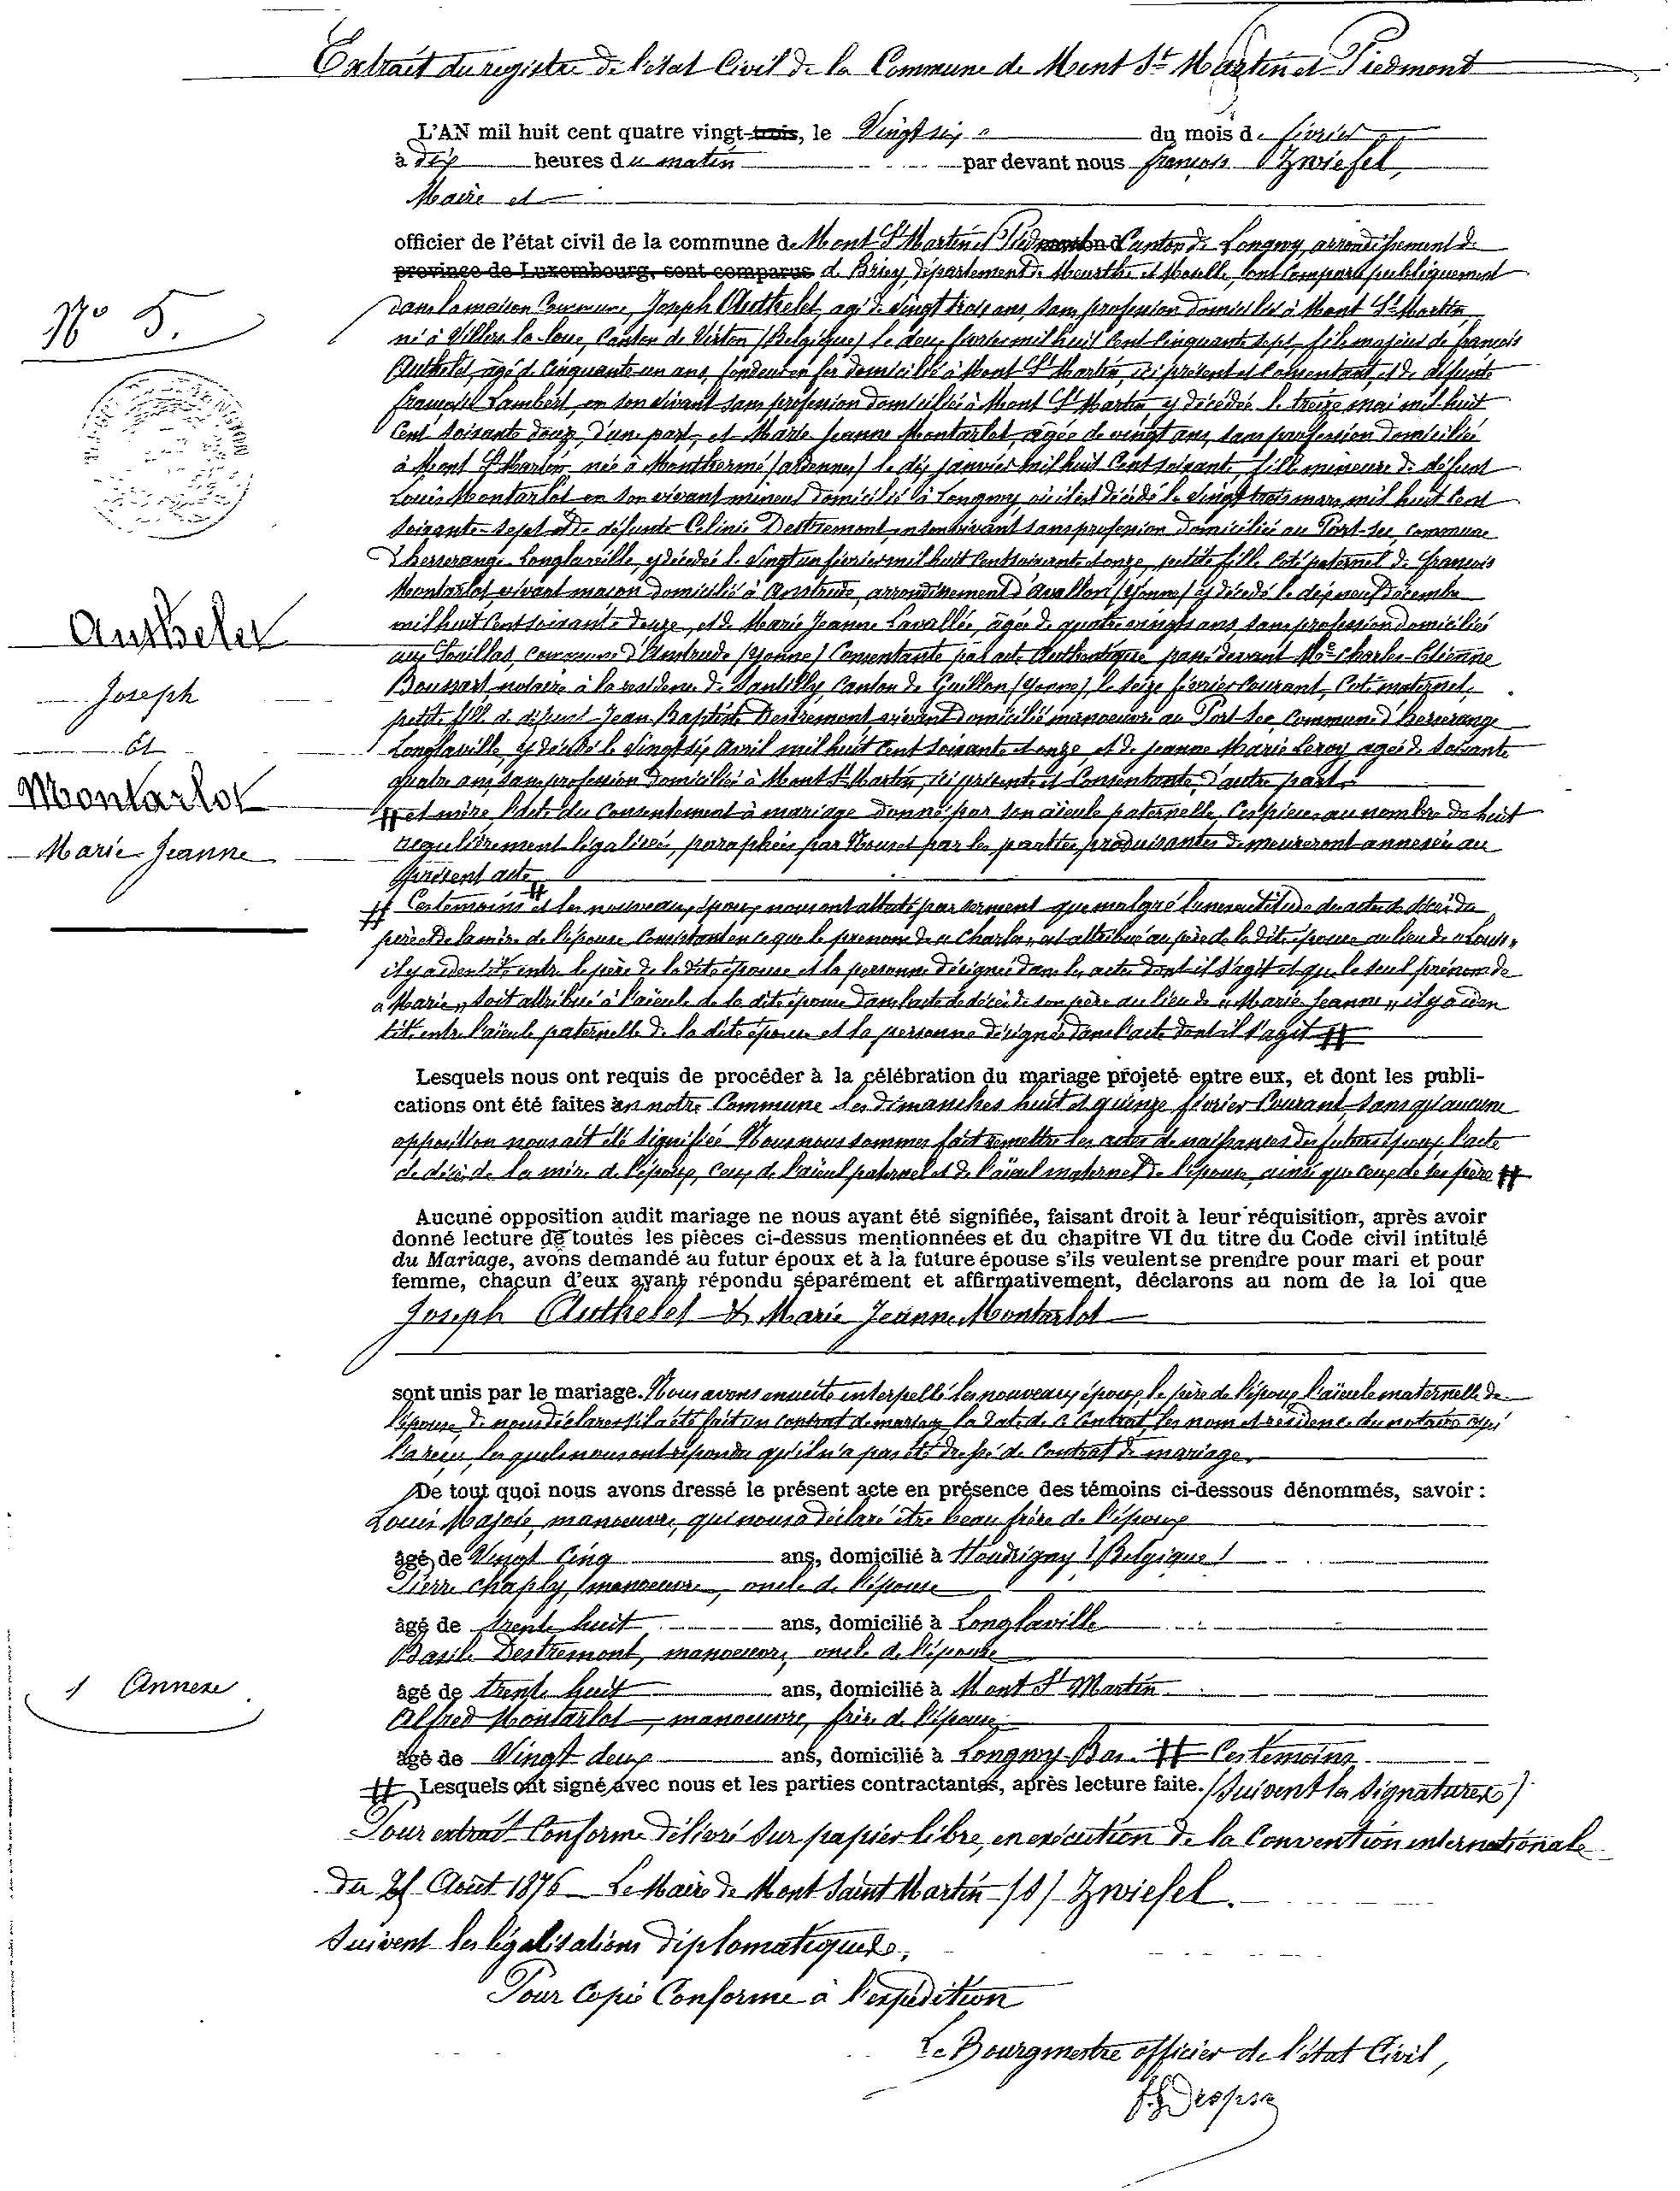 Extrait du registre de l'état Civil de la Commune de Mont St Martin et Piedmont
L'AN mil huit cent quatre vingt-trois, le Vingt six du mois de février
à dix heures du matin par devant nous françois Zwiefel,
Maire et
officier de l'état civil de la commune de Mont St Martin et Piedmont Canton de Longwy, arrondissement de
province de Luxembourg, sont comparus de Briey, département de Meurthe et Moselle, sont comparu publiquement
N° 5.
dans la maison Commune, Joseph Authelet, agé de vingt trois ans, sans profession domicilié à Mont St Martin,
né à Villers la loue, Canton de Virton (Belgique) le deux février mil huit Cent Cinquante sept, fils majeur de françois
Authelet, âgé de Cinquante un ans, fondeur en fer domicilié à Mont St Martin, ici présent et Consentant, et de défunte
françoise Lambert, en son vivant sans profession domiciliée à Mont St Martin, y décédée le treize mai mil huit
Cent soixante douze, d'une part, et Marie Jeanne Montarlot, agée de vingt ans, sans profession domiciliée
à Mont St Martin, née à Monthermé (ardennes) le dix janvier mil huit Cent soixante, fille mineure de défunt
Louis Montarlot en son vivant mineur domicilié à Longwy, où il est décédé le vingt trois mars mil huit Cent
soixante-sept et de défunte Celinie Destremont, en son vivant sans profession domiciliée au Port-sec, commune
d'herserange-Longlaville, y décédée le vingt un février mil huit Cent soixante et onze, petite fille Coté paternel de françois
Montarlot vivant maçon domicilié à Anstrude, arrondissement d'Avallon (Yonne) y décédé le dix neuf décembre
mil huit Cent soixante douze, et de Marie Jeanne Lavallée, âgée de quatre vingts ans, sans profession domiciliée
Authelet
aux Souillas, commune d'Anstrude (Yonne) Consentante par acte Authentique passé devant Me Charles-Etienne
Joseph
Boussard notaire à la résidence de Santilly, Canton de Guillon (Yonne), le seize février Courant, Coté maternel,
petite fille de défunt Jean Baptiste Destremont, vivant domicilié manoeuvre au Port-Sec, Commune d'herserange
Et
Longlaville, y décédé le vingt six avril mil huit Cent soixante et onze, et de jeanne Marie Leroy, agée de soixante
quatre ans, sans profession domiciliée à Mont St Martin, ici présente et Consentante, d'autre part.
Montarlot
et mère, l'acte du Consentement à mariage donné par son aïeule paternelle, Ces pièces au nombre de huit
régulièrement légalisées, paraphées par Nous et par les parties produisantes demeureront annexées au
Marie Jeanne
présent acte
Ces témoins et les nouveaux époux nous ont attesté par serment que malgré l'inexactitude des actes de décès du
père et de la mère de l'épouse Consistant en ce que le prenom de « Charles » est attribué au père de la dite épouse au lieu de « Louis »
il y a identité entre le père de la dite épouse et la personne désignée dans les actes dont il s'agit et que le seul prénom de
« Marie » soit attribué à l'aïeule de la dite épouse dans l'acte de décès de son père au lieu de « Marie Jeanne » il y a iden
tité entre l'aïeule paternelle de la dite épouse et la personne désignée dans l'acte dont il s'agit
Lesquels nous ont requis de procéder à la célébration du mariage projeté entre eux, et dont les publi-
cations ont été faites en notre Commune les dimanches huit et quinze février Courant, sans qu'aucune
opposition nous ait été signifiée. Nous nous sommes fait remettre les actes de naissances des futurs époux, l'acte
de décès de la mère de l'époux, ceux de l'aïeul paternel et de l'aïeul maternel de l'épouse, ainsi que ceux de ses père
Aucune opposition audit mariage ne nous ayant été signifiée, faisant droit à leur réquisition, après avoir
donné lecture de toutes les pièces ci-dessus mentionnées et du chapitre VI du titre du Code civil intitulé
du Mariage, avons demandé au futur époux et à la future épouse s'ils veulent se prendre pour mari et pour
femme, chacun d'eux ayant répondu séparément et affirmativement, déclarons au nom de la loi que
Joseph Authelet & Marie Jeanne Montarlot
sont unis par le mariage. Nous avons ensuite interpellé les nouveaux époux, le père de l'époux, l'aïeule maternelle de
l'épouse, de nous déclarer s'il a été fait un contrat de mariage, la date de ce Contrat, les nom et résidence du notaire qui
l'a reçu, les quels nous ont répondu qu'il n'a pas été dressé de Contrat de mariage.
De tout quoi nous avons dressé le présent acte en présence des témoins ci-dessous dénommés, savoir :
Louis Majoie, manoeuvre, qui nous a déclaré être beau frère de l'époux
âgé de Vingt Cinq ans, domicilié à Houdrigny (Belgique)
Pierre Chaply, manoeuvre, oncle de l'épouse
âgé de trente huit ans, domicilié à Longlaville
Basile Destremont, manoeuvre, oncle de l'épouse
1 Annexe
âgé de trente huit ans, domicilié à Mont St Martin
Alfred Montarlot, manoeuvre, frère de l'épouse
âgé de Vingt deux ans, domicilié à Longwy-Bas. Ces témoins
Lesquels ont signé avec nous et les parties contractantes, après lecture faite. (Suivent les Signatures)
Pour extrait Conforme délivré sur papier libre, en exécution de la Convention internationale
du 25 Août 1876 Le Maire de Mont Saint Martin (S) Zwiefel.
Suivent les légalisations diplomatiques,
Pour Copie Conforme à l'expédition
Le Bourgmestre officier de l'état Civil,